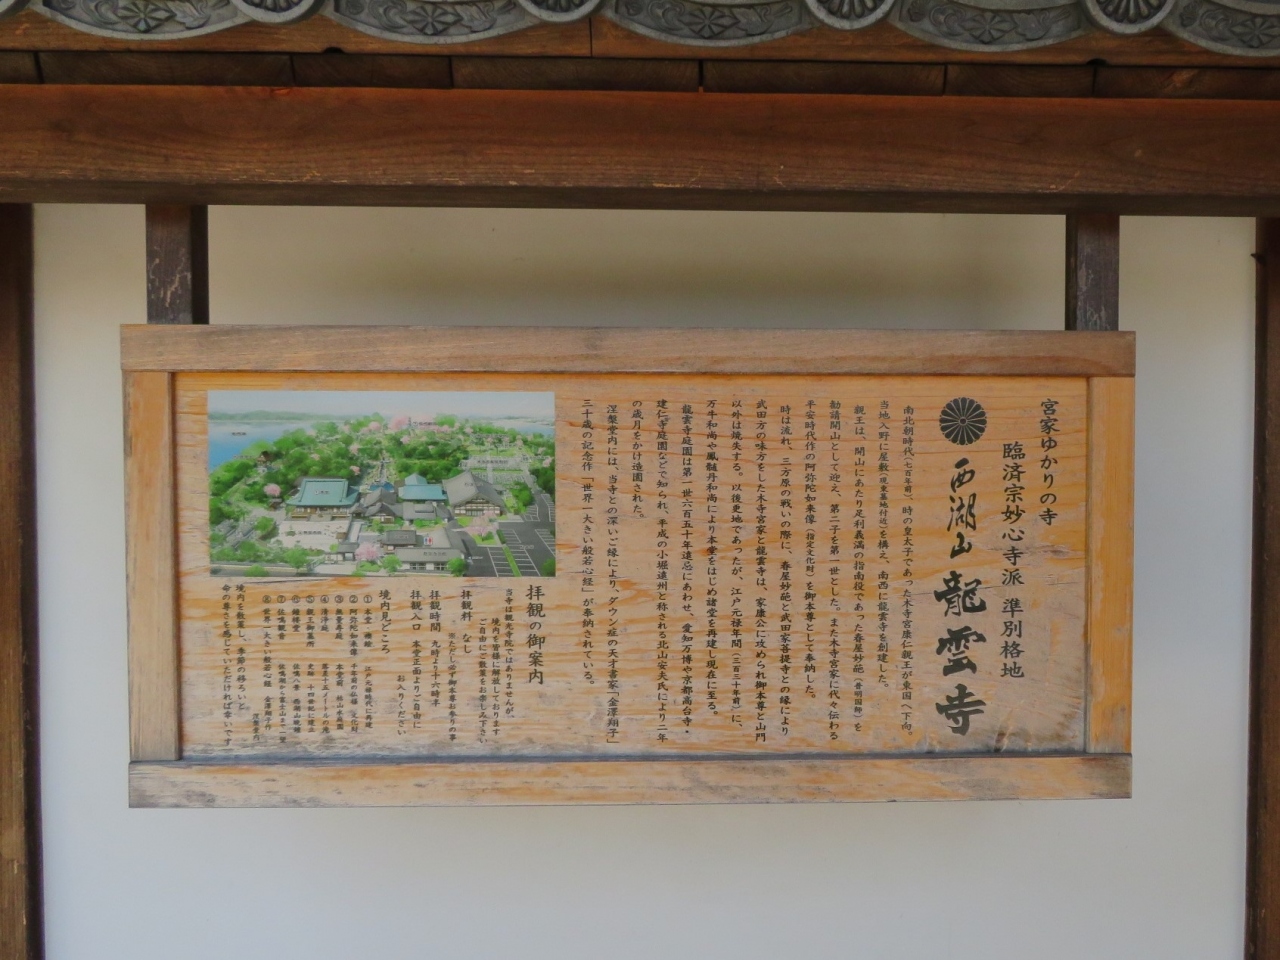 宮家ゆかりの寺
臨済宗妙心寺派 準別格地
西湖山 龍雲寺
南北朝時代(七百年前)、時の皇太子であった木寺宮康仁親王が東国へ下向。
当地入野に屋敷(現東墓地付近)を構え、南西に龍雲寺を創建した。
親王は、開山にあたり足利義満の指南役であった春屋妙葩(普明国師)を
勧請開山として迎え、第二子を第一世とした。また木寺宮家に代々伝わる
平安時代作の阿弥陀如来像(指定文化財)を御本尊として奉納した。
時は流れ、三方原の戦いの際に、春屋妙葩と武田家菩提寺との縁により
武田方の味方をした木寺宮家と龍雲寺は、家康公に攻められ御本尊と山門
以外は焼失する。以後更地であったが、江戸元禄年間(三百三十年前)に、
万牛和尚や鳳髄丹和尚により本堂をはじめ諸堂を再建し現在に至る。
龍雲寺庭園は第一世六百五十年遠忌にあわせ、愛知万博や京都高台寺・
建仁寺庭園などで知られ、平成の小堀遠州と称される北山安夫氏により二年
の歳月をかけ造園された。
涅槃堂内には、当寺との深いご縁により、ダウン症の天才書家「金澤翔子」
三十歳の記念作「世界一大きい般若心経」が奉納されている。
拝観の御案内
当寺は観光寺院ではありませんが、
境内を皆様に解放しております
ご自由にご散策をお楽しみ下さい
拝観料 なし
※ただし必ず御本尊お参りの事
拝観時間 九時より十六時半
拝観入口 本堂正面よりご自由に
お入りください
境内見どころ
①本堂 襖絵 江戸元禄時代に再建
②阿弥陀如来像 千年前の仏様 文化財
③無量寿庭 本堂前 枯山水庭園
④清浄庭
⑤親王御墓所
⑥鐘楼堂
⑦佐鳴観音
⑧世界一大きい般若心経 金澤翔子作
涅槃堂内
境内を散策し、季節の移ろいと
命の尊さを感じていただければ幸いです